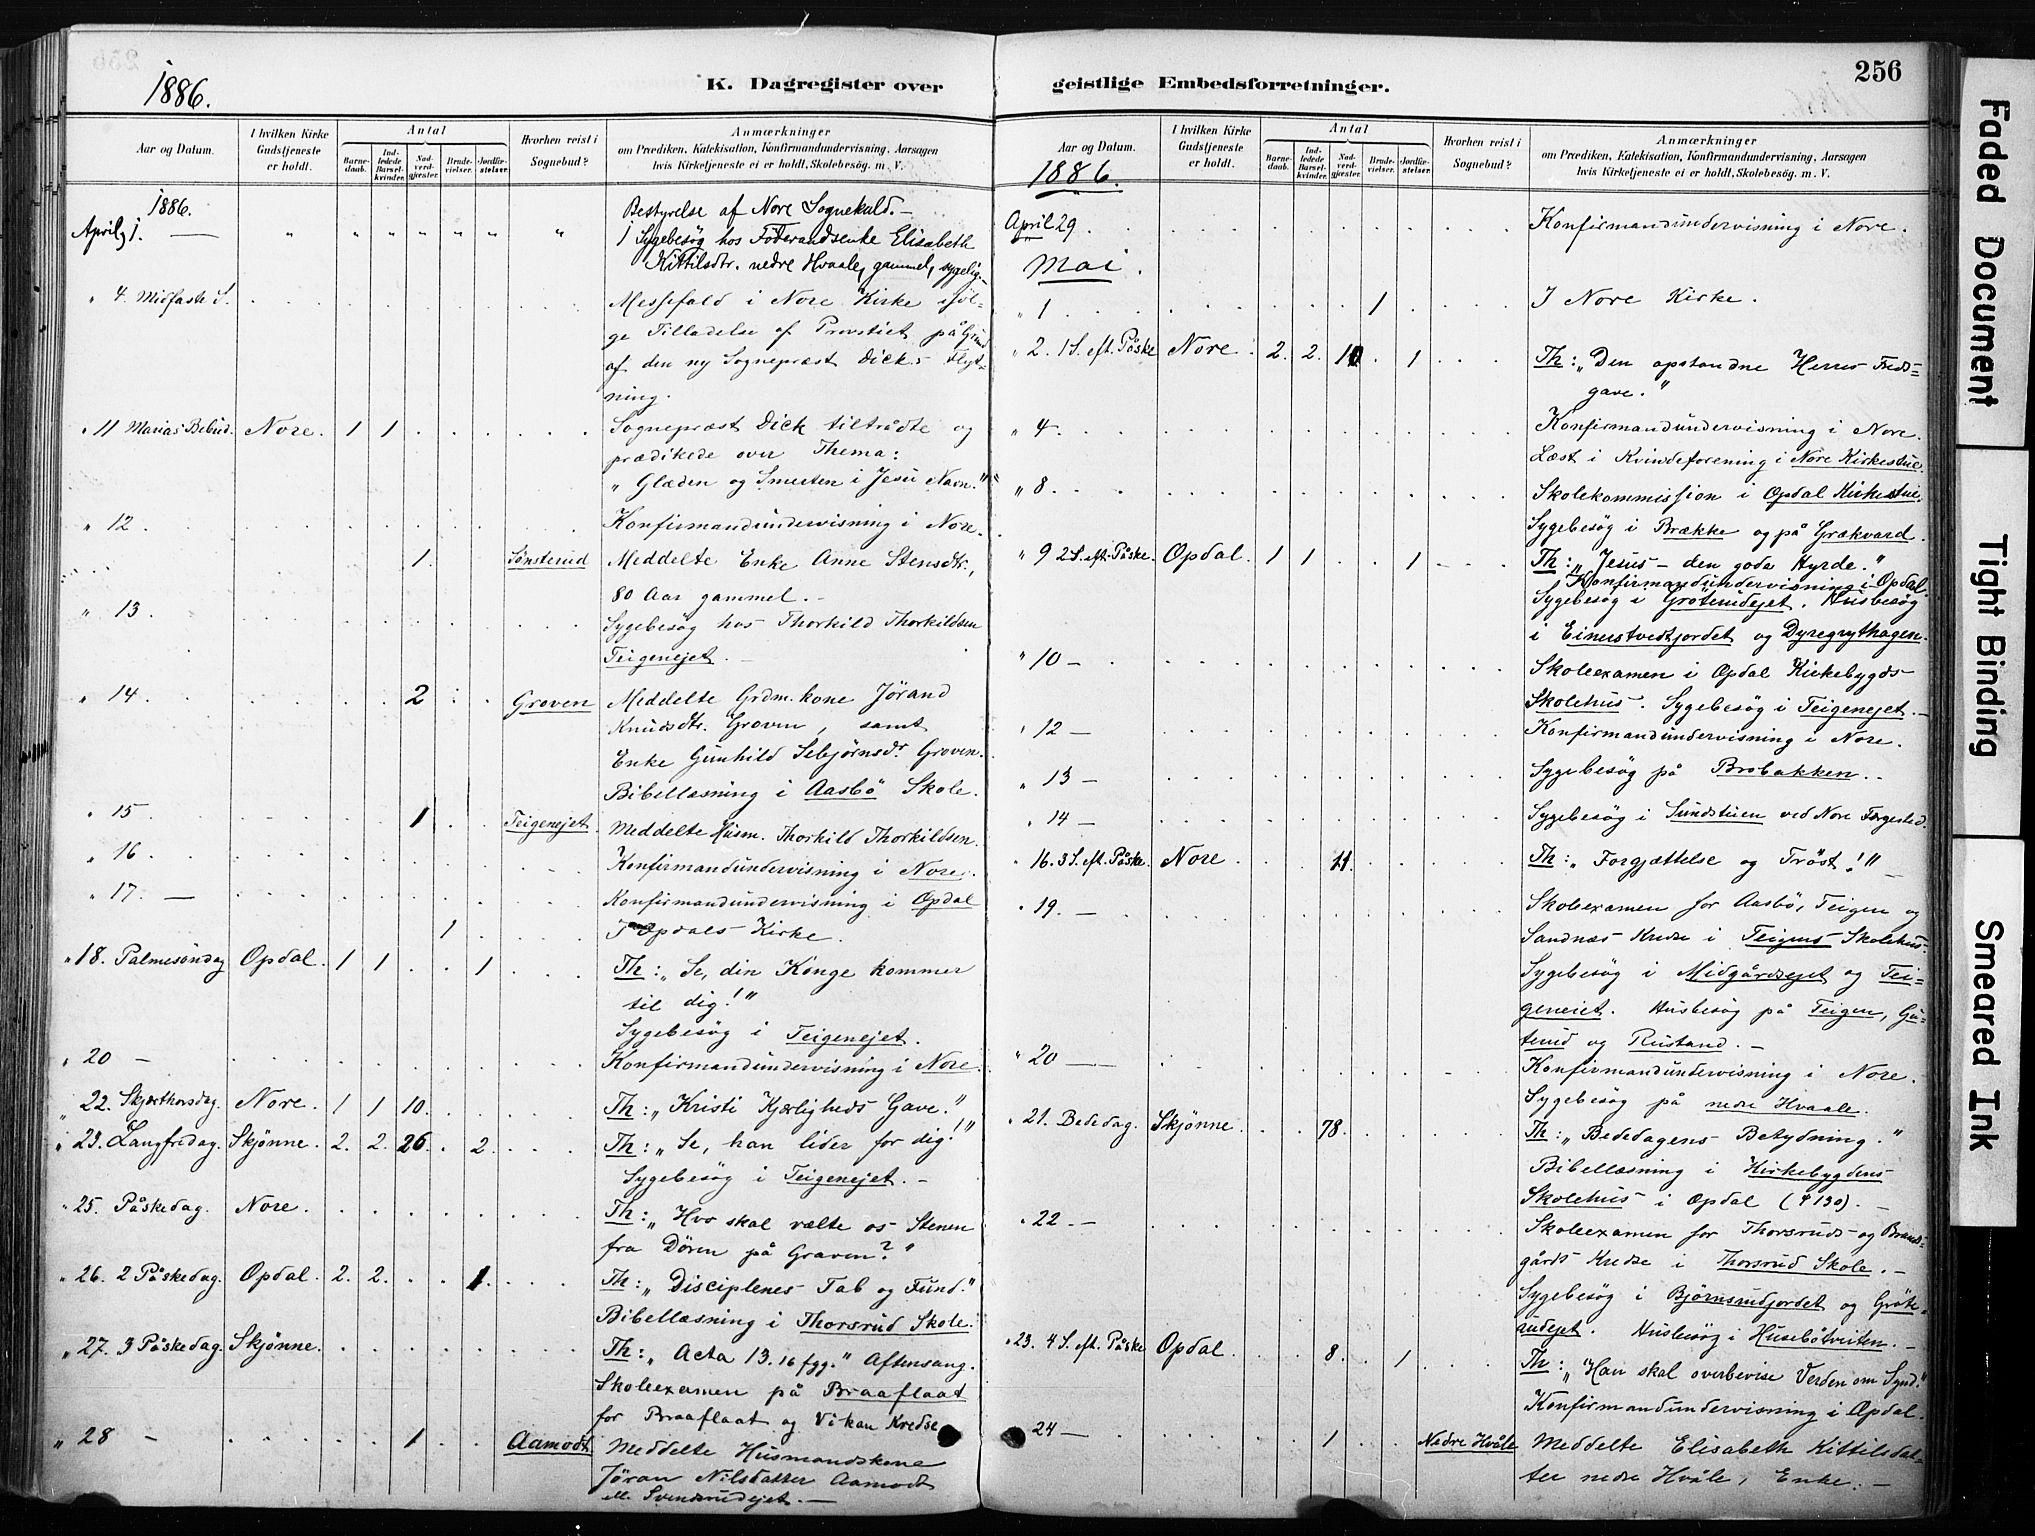 1886.
K. Dagregister over
Aar og Datum.
I hvilken Kirke Gudstjeneste er holdt.
Antal
Barnedaab.
Indledede Barselkvinder.
Nadverdgjester.
Brudevielser.
Jordfæstelser.
Hvorhen reist i Sognebud?
Anmærkninger
om Prædiken, Katekisation, Konfirmandundervisning, Aarsagen
hvis Kirketjeneste ei er holdt, Skolebesøg. m. V.
1886.
Bestyrelse af Nore Sognekald. –
April 1. — " " " " " " " Sygebesøg hos Föderaadsenke Elisabeth
Kittilsdtr. nedre Hvaale, gammel, sygelig.
" 4. Midfaste S. Messefald i Nore Kirke iföl-
ge Tilladelse af Provstiet på Grund
af den ny Sognepræst Dicks Flyt-
ning.
" 11 Marias Bebud. Nore. 1 1 Sognepræst Dick tiltrådte og
prædikede over Thema:
"Glæden og Smerten i Jesu Navn."
" 12. Konfirmandundervisning i Nore.
1. Sönsterud Meddelte Enke Anne Stensdtr.,
80 Aar gammel. –
" 13 Sygebesøg hos Thorkild Thorkildsen
Teigenejet. –
" 14 2 Groven Meddelte Grdm.kone Jörand
Knudsdtr. Groven, samt
Enke Gunhild Sebjörnsdr Groven.
Bibellæsning i Aasbö Skole.
" 15 1 Teigenejet. Meddelte Husm. Thorkild Thorkildsen.
" 16 Konfirmandundervisning i Nore.
" 17. — Konfirmandundervisning i Opdal
1 I Opdals Kirke.
" 18. Palmesöndag Opdal. 1 1 1 Th: "Se, din Konge kommer
til dig!"
Sygebesøg i Teigenejet.
" 20 – Konfirmandundervisning i Nore.
" 22. Skjærthorsdag. Nore. 1 1 10. Th: "Kristi Kjærligheds Gave."
" 23. Langfredag. Skjønne. 2. 2. 26. 2. Th: "Se, han lider for dig!"
Sygebesøg i Teigenejet. –
" 25. Påskedag. Nore. Th: "Hvo skal vælte os Stenen
fra Dören på Graven?"
" 26. 2 Påskedag. Opdal. 2. 2. 1. Th: "Disciplenes Tab og Fund."
Bibellæsning i Thorsrud Skole.
" 27. 3 Påskedag. Skjønne. Th: "Acta 13.16 fgg." Aftensang.
Skoleexamen på Braaflaat
for Braaflaat og Vikan Kredse
" 28 – 1 Aamodt. Meddelte Husmandskone
Jöran Nilsdatter Aamodt
ell. Svendsrudejet. –
geistlige Embedsforretninger.
256
Aar og Datum.
I hvilken Kirke Gudstjeneste er holdt.
Antal
Barnedaab.
Indledede Barselkvinder.
Nadverdgjester.
Brudevielser.
Jordfæstelser.
Hvorhen reist i Sognebud?
Anmærkninger
om Prædiken, Katekisation, Konfirmandundervisning, Aarsagen
hvis Kirketjeneste ei er holdt, Skolebesøg. m. V.
1886.
April 29. Konfirmandundervisning i Nore.
Mai.
" 1 1 I Nore Kirke.
" 2. 1 S. eft. Påske Nore. 2. 2. 10. 1 Th: "Den opstandne Herres Freds-
gave."
" 4. Konfirmandundervisning i Nore.
Læst i Kvindeforening i Nore Kirkestue.
" 8. Skolekommission i Opdal Kirkestue.
Sygebesøg i Brække og på Grækvard.
" 9 2 S. eft. Påske. Opdal. 1 1 1 Th: "Jesus – den gode Hyrde."
Konfirmandundervisning i Opdal.
Sygebesøg i Gröterudejet. Husbesög
i Einustvedtjordet og Dyregrythagen.
" 10 – Skoleexamen i Opdal Kirkebygds
Skolehus. Sygebesøg i Teigenejet. –
" 12 – Konfirmandundervisning i Nore.
" 13 – Sygebesøg på Brobakken. –
" 14 – Sygebesøg i Sundstuen ved Nore Færgested.
" 16. 3 S. eft. Påske. Nore. 11. Th: "Forgjættelse og Tröst!" –
" 19. – Skoleexamen for Aasbö, Teigen og
Sandnæs Kredse i Teigens Skolehus.
Sygebesøg i Midgårdsejet og Tei-
geneiet. Husbesøg på Teigen, Gu-
terud og Rustand. –
" 20 — Konfirmandundervisning i Nore.
Sygebesøg på nedre Hvaale.
" 21. Bededag. Skjønne. 78. Th: "Bededagens Betydning."
Bibellæsning i Kirkebygdens
Skolehus i Opdal (ψ 130). –
" 22. – Skoleexamen for Thorsruds- og Brands-
gårds Kredse i Thorsrud Skole. –
Sygebesøg i Björnsrudjordet og Gröte-
rudejet. Husbesøg i Husebötveiten. –
" 23. 4 S. eft. Påske Opdal. 8. 1 Th: "Han skal overbevise Verden om Synd."
Konfirmandundervisning i Opdal.
" 24 – 1 Nedre Hvåle Meddelte Elisabeth Kittilsdat-
ter nedre Hvåle, Enke. –
Faded Document
Tight Binding
Smeared Ink